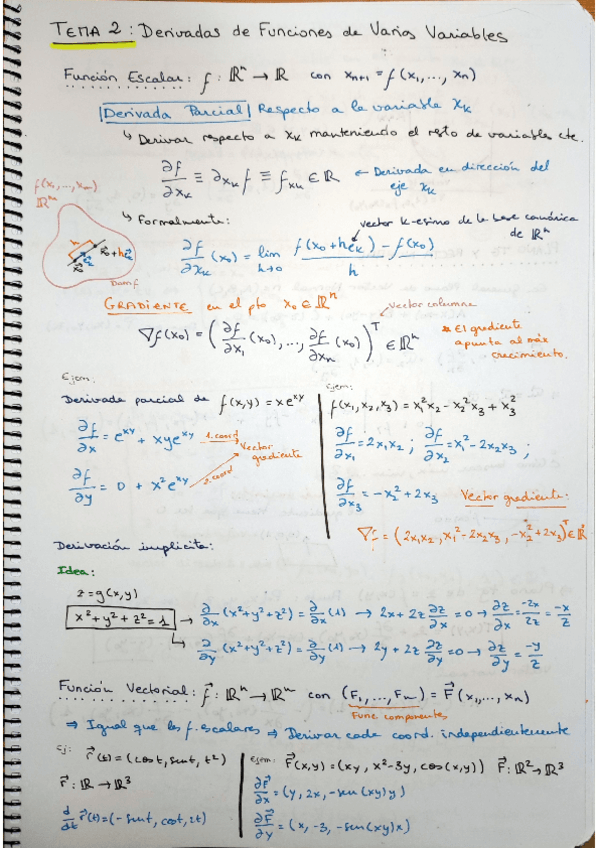 TEMA 2: Derivadas de Funciones de Varias Variables
Función Escalar: f: ℝⁿ → ℝ con xₙ₊₁ = f(x₁,..., xₙ)
Derivada Parcial Respecto a la variable xₖ
↳ Derivar respecto a xₖ manteniendo el resto de variables cte.
∂f/∂xₖ ≡ ∂ₓₖ f ≡ fₓₖ ∈ ℝ ← Derivada en dirección del
eje xₖ
f(x₁,...,xₙ)
ℝⁿ
↳ Formalmente:
vector k-esimo de la base canónica
de ℝⁿ
∂f/∂xₖ (x₀) = lim h→0 (f(x₀ + he⃗ₖ) - f(x₀))/h
h
x₀ e⃗ₖ x₀+he⃗ₖ
Dom f
GRADIENTE en el pto x₀ ∈ ℝⁿ
vector columna
∇f(x₀) = (∂f/∂x₁ (x₀),..., ∂f/∂xₙ (x₀))ᵀ ∈ ℝⁿ
* El gradiente
apunta al máx
crecimiento.
Ejem.
Derivada parcial de f(x,y) = xeˣʸ
∂f/∂x = eˣʸ + xyeˣʸ 1.coord → Vector
gradiente
∂f/∂y = 0 + x²eˣʸ 2.coord
Ejem:
f(x₁,x₂,x₃) = x₁²x₂ - x₂²x₃ + x₃²
∂f/∂x₁ = 2x₁x₂ ; ∂f/∂x₂ = x₁² - 2x₂x₃ ;
∂f/∂x₃ = -x₂² + 2x₃ Vector gradiente:
∇f = (2x₁x₂, x₁²-2x₂x₃, -x₂²+2x₃)ᵀ ∈ ℝ³
Derivación implícita:
Idea:
z = g(x,y)
x²+y²+z²=1 → ∂/∂x (x²+y²+z²) = ∂/∂x (1) → 2x + 2z ∂z/∂x = 0 → ∂z/∂x = -2x/2z = -x/z
↳ ∂/∂y (x²+y²+z²) = ∂/∂y (1) → 2y + 2z ∂z/∂y = 0 → ∂z/∂y = -y/z
Función Vectorial: f⃗: ℝⁿ → ℝᵐ con (F₁,..., Fₘ) = F⃗(x₁,..., xₙ)
Func componentes
⇒ Igual que las f. escalares ⇒ Derivar cada coord. independientemente
Ej: r⃗(t) = (cost, sent, t²)
r⃗: ℝ → ℝ³
d/dt r⃗(t) = (-sent, cost, 2t)
ejem: F⃗(x,y) = (xy, x²-3y, cos(xy)) F⃗: ℝ² → ℝ³
∂F⃗/∂x = (y, 2x, -sen(xy)y)
∂F⃗/∂y = (x, -3, -sen(xy)x)